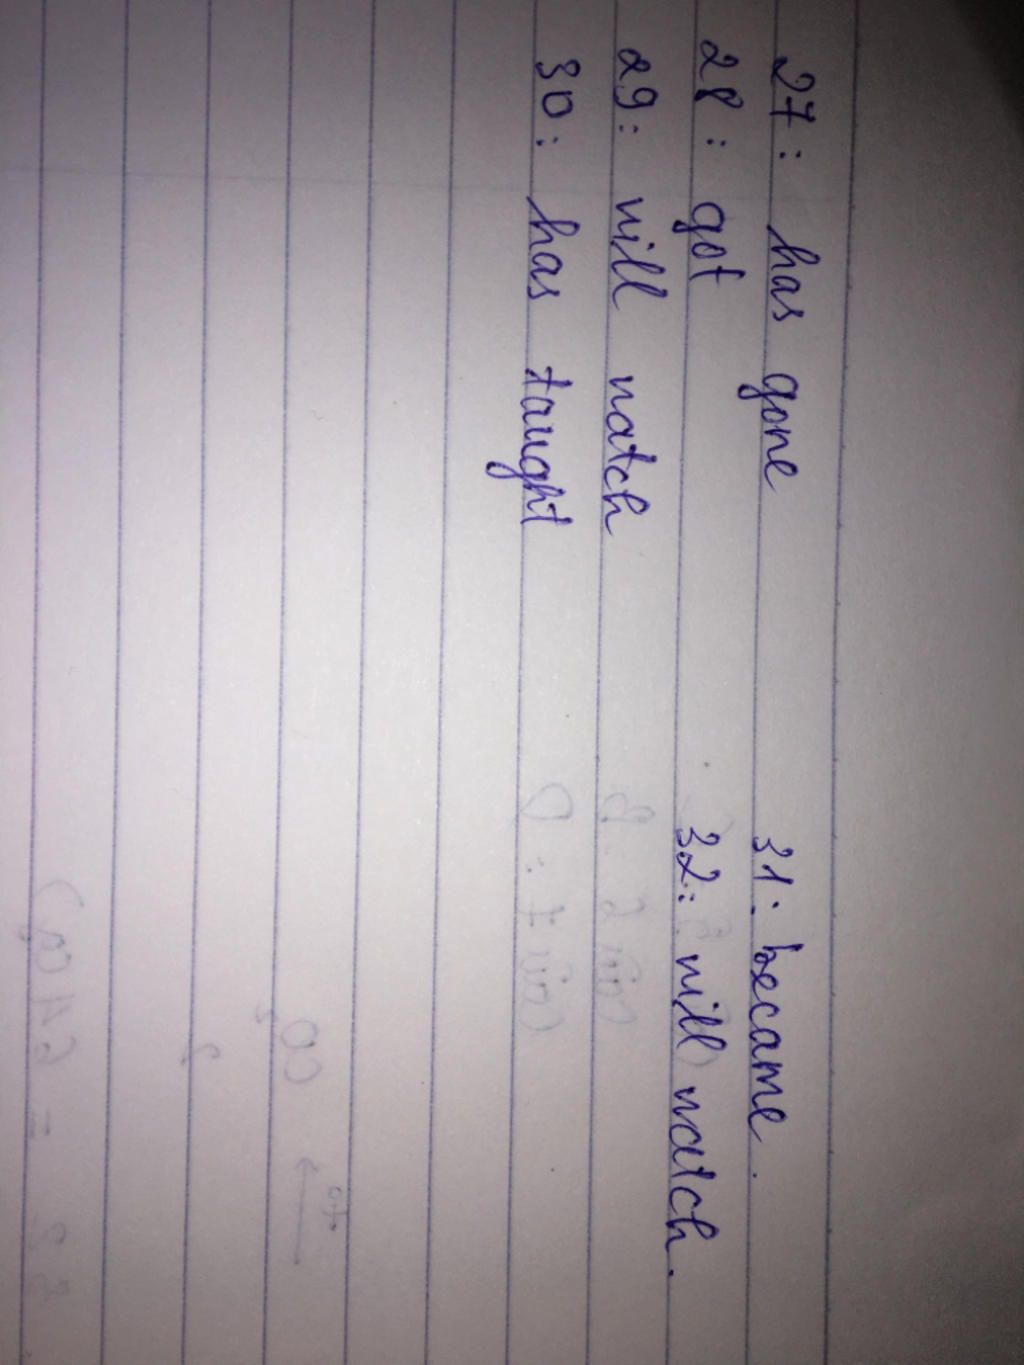 27: has gone
28: got
29: will watch
30: has taught
31: became.
32: will watch.